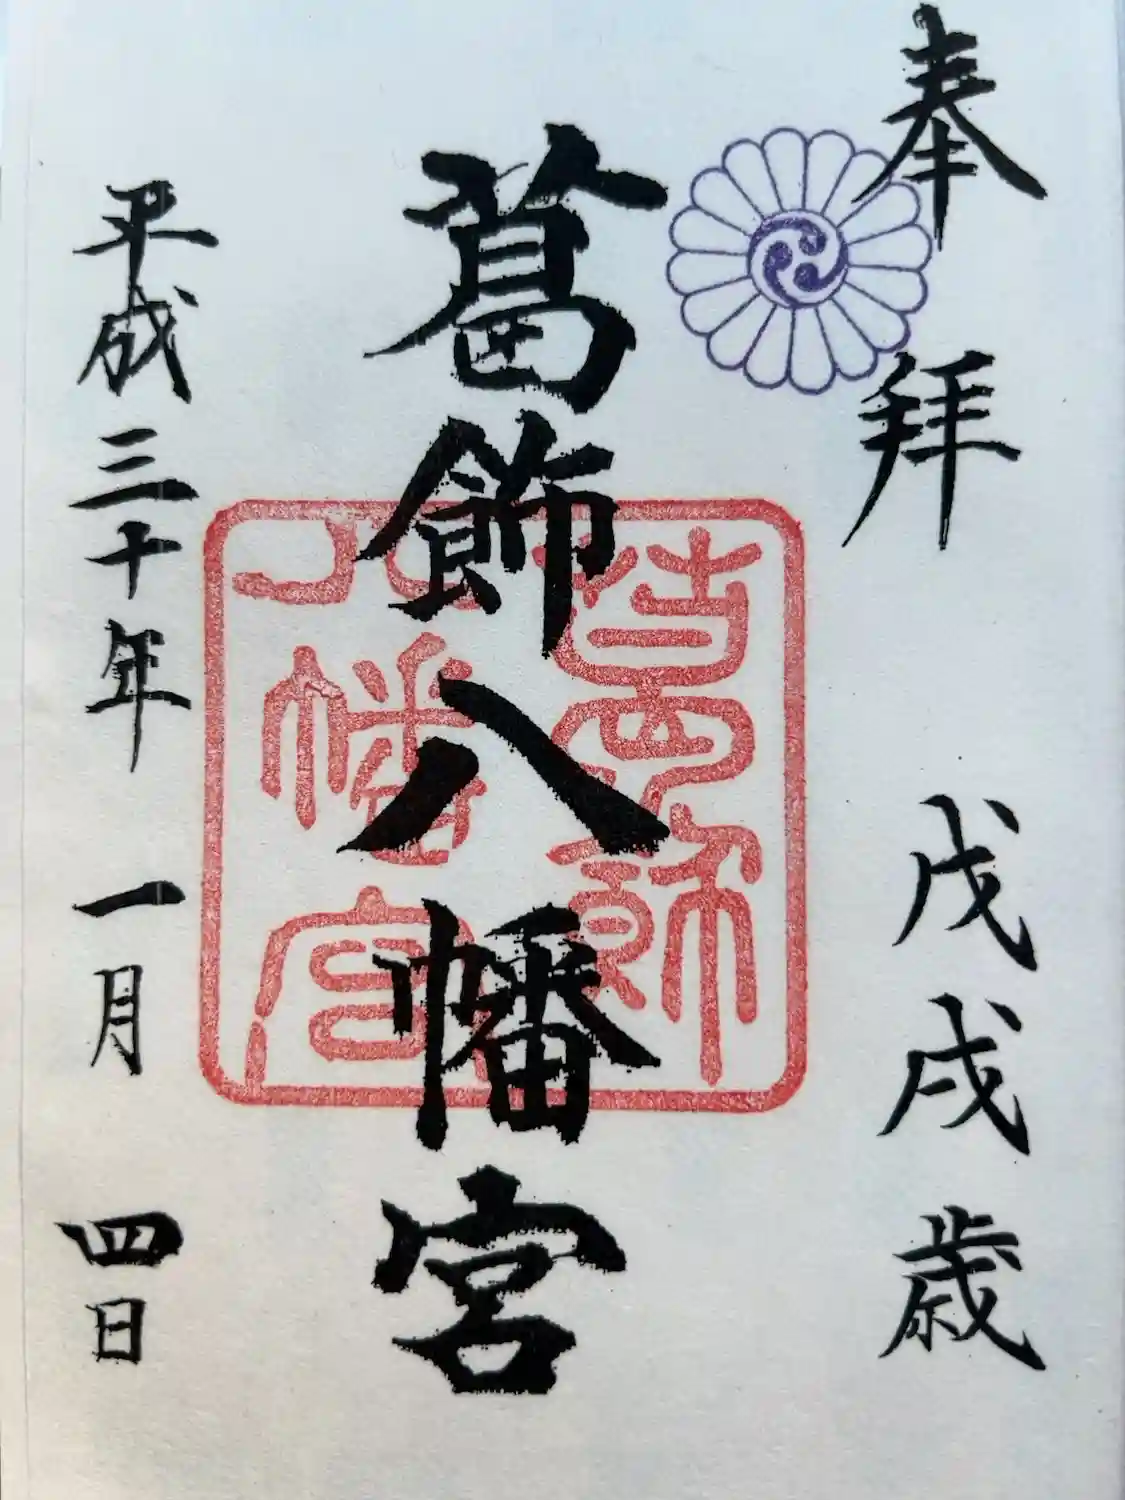 奉拝
戊戌歳
葛飾八幡宮
葛飾
八幡宮
平成三十年 一月 四日